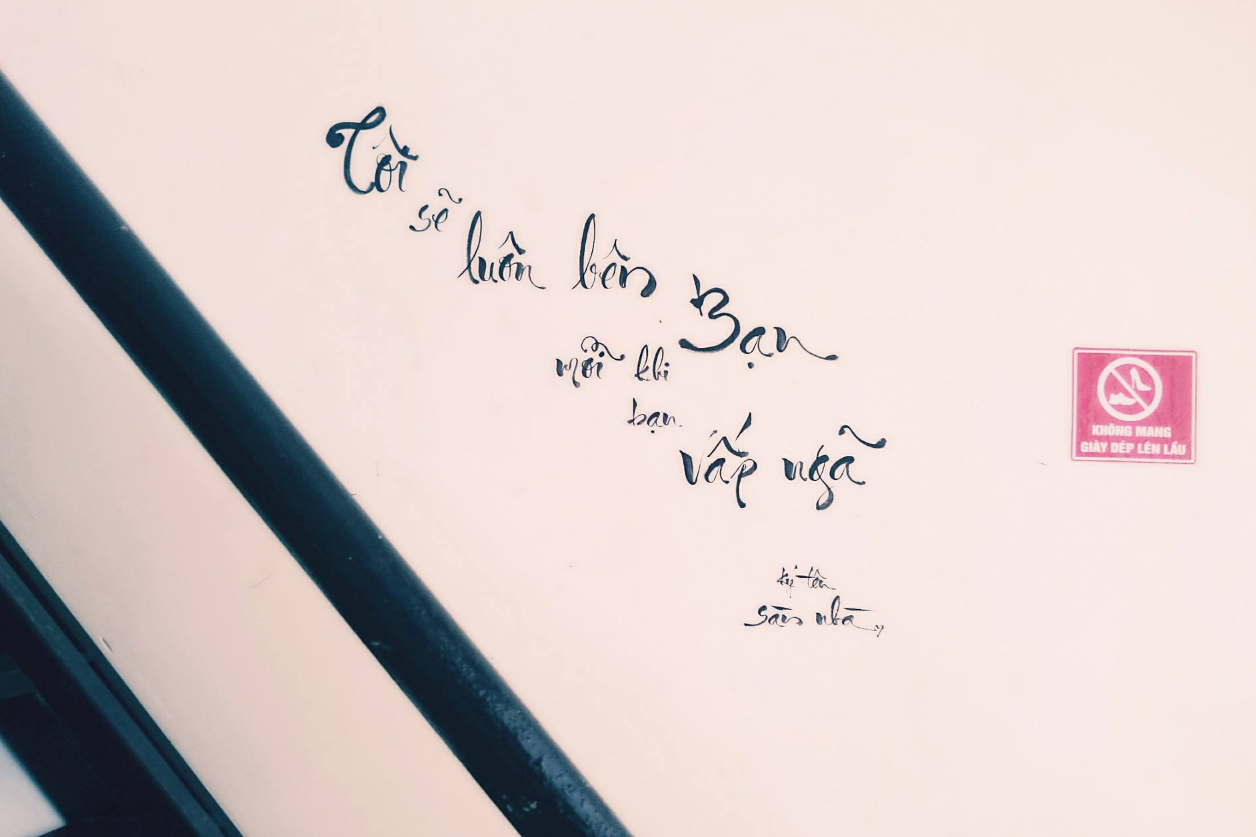 Tôi
sẽ
luôn bên Bạn
mỗi khi
bạn
vấp ngã
ký tên
sàn nhà
KHÔNG MANG
GIÀY DÉP LÊN LẦU